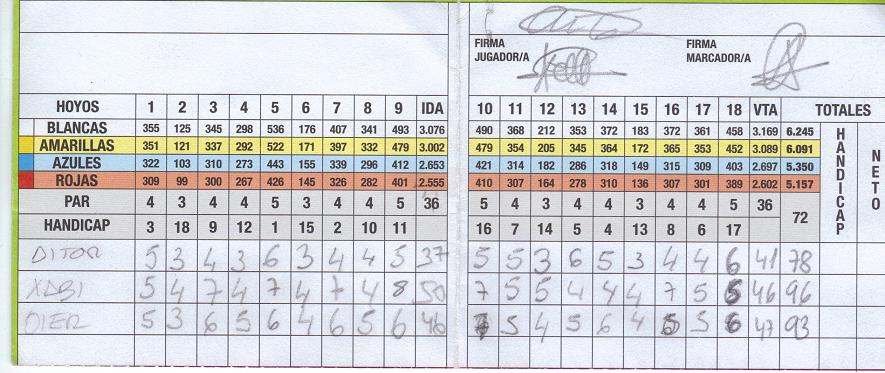 FIRMA JUGADOR/A FIRMA MARCADOR/A
HOYOS 1 2 3 4 5 6 7 8 9 IDA 10 11 12 13 14 15 16 17 18 VTA TOTALES
BLANCAS 355 125 345 298 536 176 407 341 493 3.076 490 368 212 353 372 183 372 361 458 3.169 6.245
AMARILLAS 351 121 337 292 522 171 397 332 479 3.002 479 354 205 345 364 172 365 353 452 3.089 6.091
AZULES 322 103 310 273 443 155 339 296 412 2.653 421 314 182 286 318 149 315 309 403 2.697 5.350
ROJAS 309 99 300 267 426 145 326 282 401 2.555 410 307 164 278 310 136 307 301 389 2.602 5.157
PAR 4 3 4 4 5 3 4 4 5 36 5 4 3 4 4 3 4 4 5 36 72
HANDICAP 3 18 9 12 1 15 2 10 11 16 7 14 5 4 13 8 6 17
HANDICAP
NETO
AITOR 5 3 4 3 6 3 4 4 5 37 5 5 3 6 5 3 4 4 6 41 78
XABI 5 4 7 4 7 4 7 4 8 50 7 5 5 4 4 4 7 5 5 46 96
OIER 5 3 6 5 6 4 6 5 6 46 7 5 4 5 6 4 5 5 6 47 93